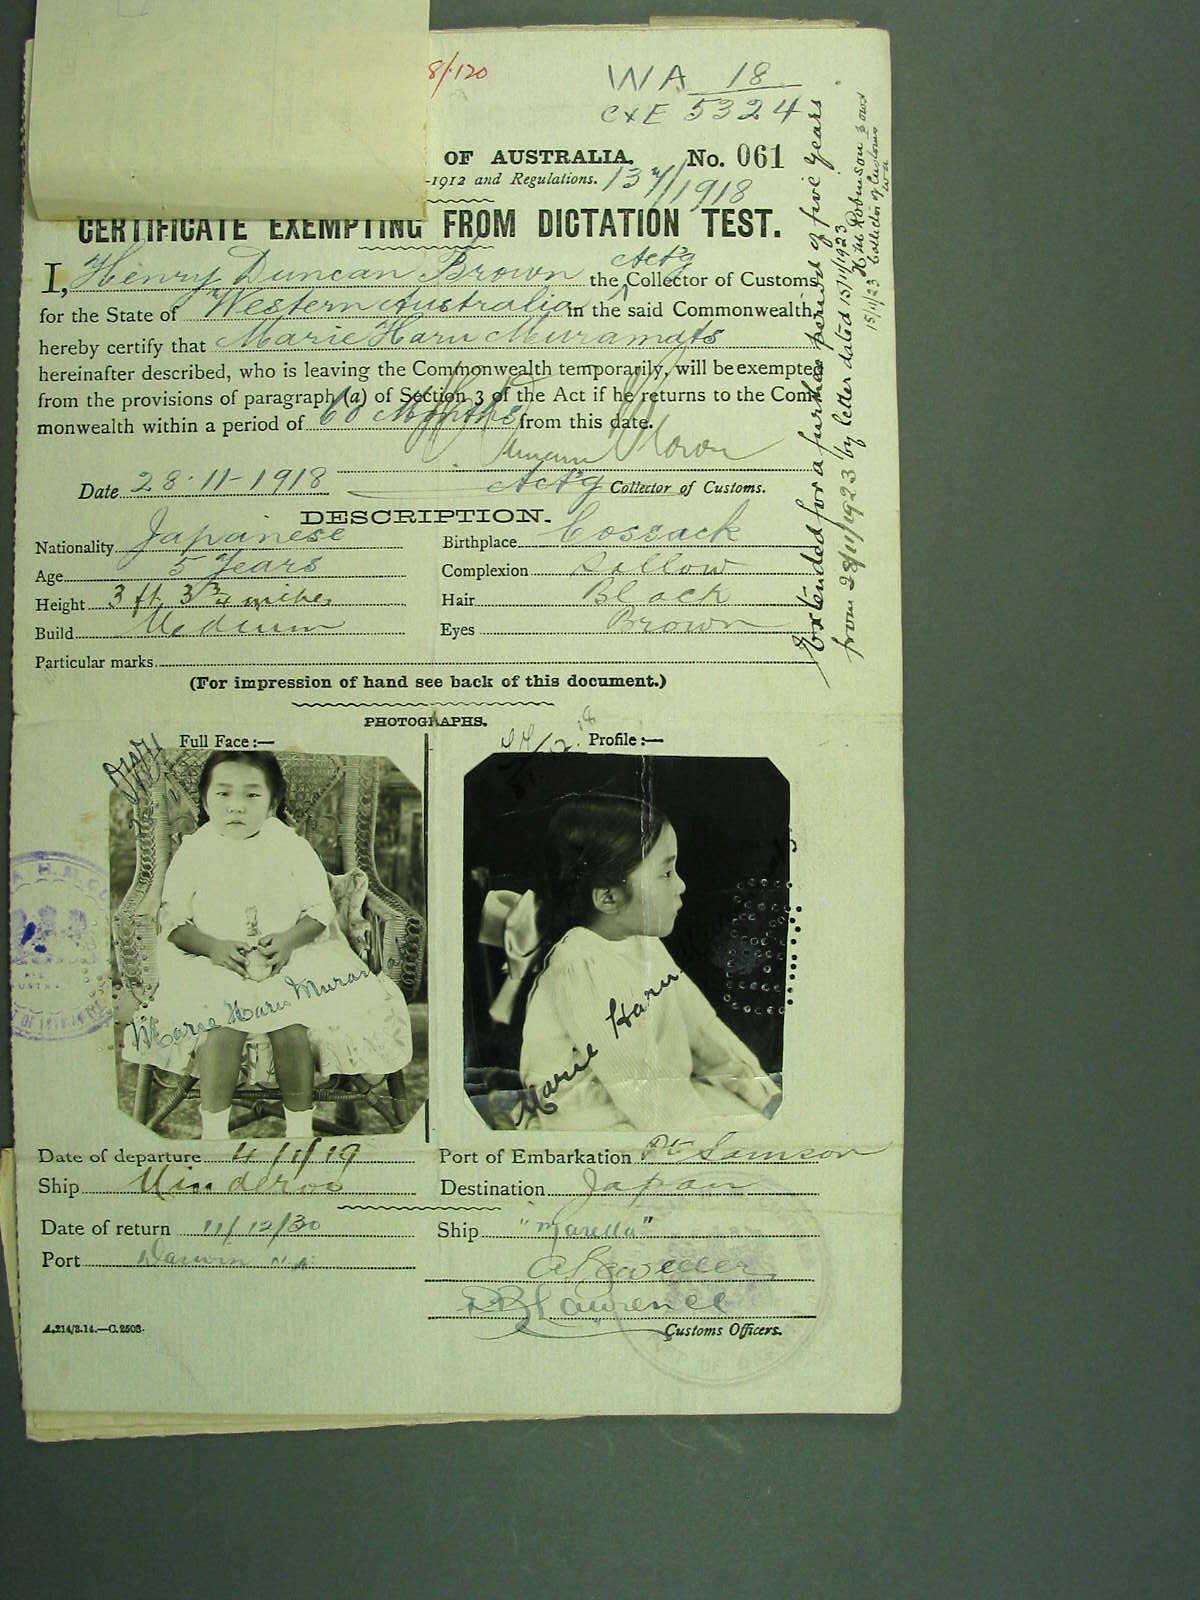 8/120
WA 18
C&E 5324
OF AUSTRALIA. No. 061
-1912 and Regulations. 1918
CERTIFICATE EXEMPTING FROM DICTATION TEST.
I, Henry Duncan Brown the Act'g Collector of Customs
for the State of Western Australia in the said Commonwealth,
hereby certify that Marie Haru Muramats
hereinafter described, who is leaving the Commonwealth temporarily, will be exempted
from the provisions of paragraph (a) of Section 3 of the Act if he returns to the Com-
monwealth within a period of 60 Months from this date.
H Duncan Brown
Date 28-11-1918 Act'g Collector of Customs.
DESCRIPTION.
Nationality Japanese Birthplace Cossack
Age 5 Years Complexion Sallow
Height 3 ft 3 3/4 inches Hair Black
Build Medium Eyes Brown
Particular marks
(For impression of hand see back of this document.)
PHOTOGRAPHS.
Full Face:— Profile:—
Marie Haru Mura
Marie Haru
Date of departure 4/1/19 Port of Embarkation Pt Samson
Ship Minderoo Destination Japan
Date of return 11/12/30 Ship "Marella"
Port Darwin N.A.
Lawrence
A.214/3.14.—C.2503. Customs Officers.
Extended for a further period of five years
from 28/11/1923 by letter dated 15/11/1923
H M Robinson
Collector of Customs
WA
15/11/23